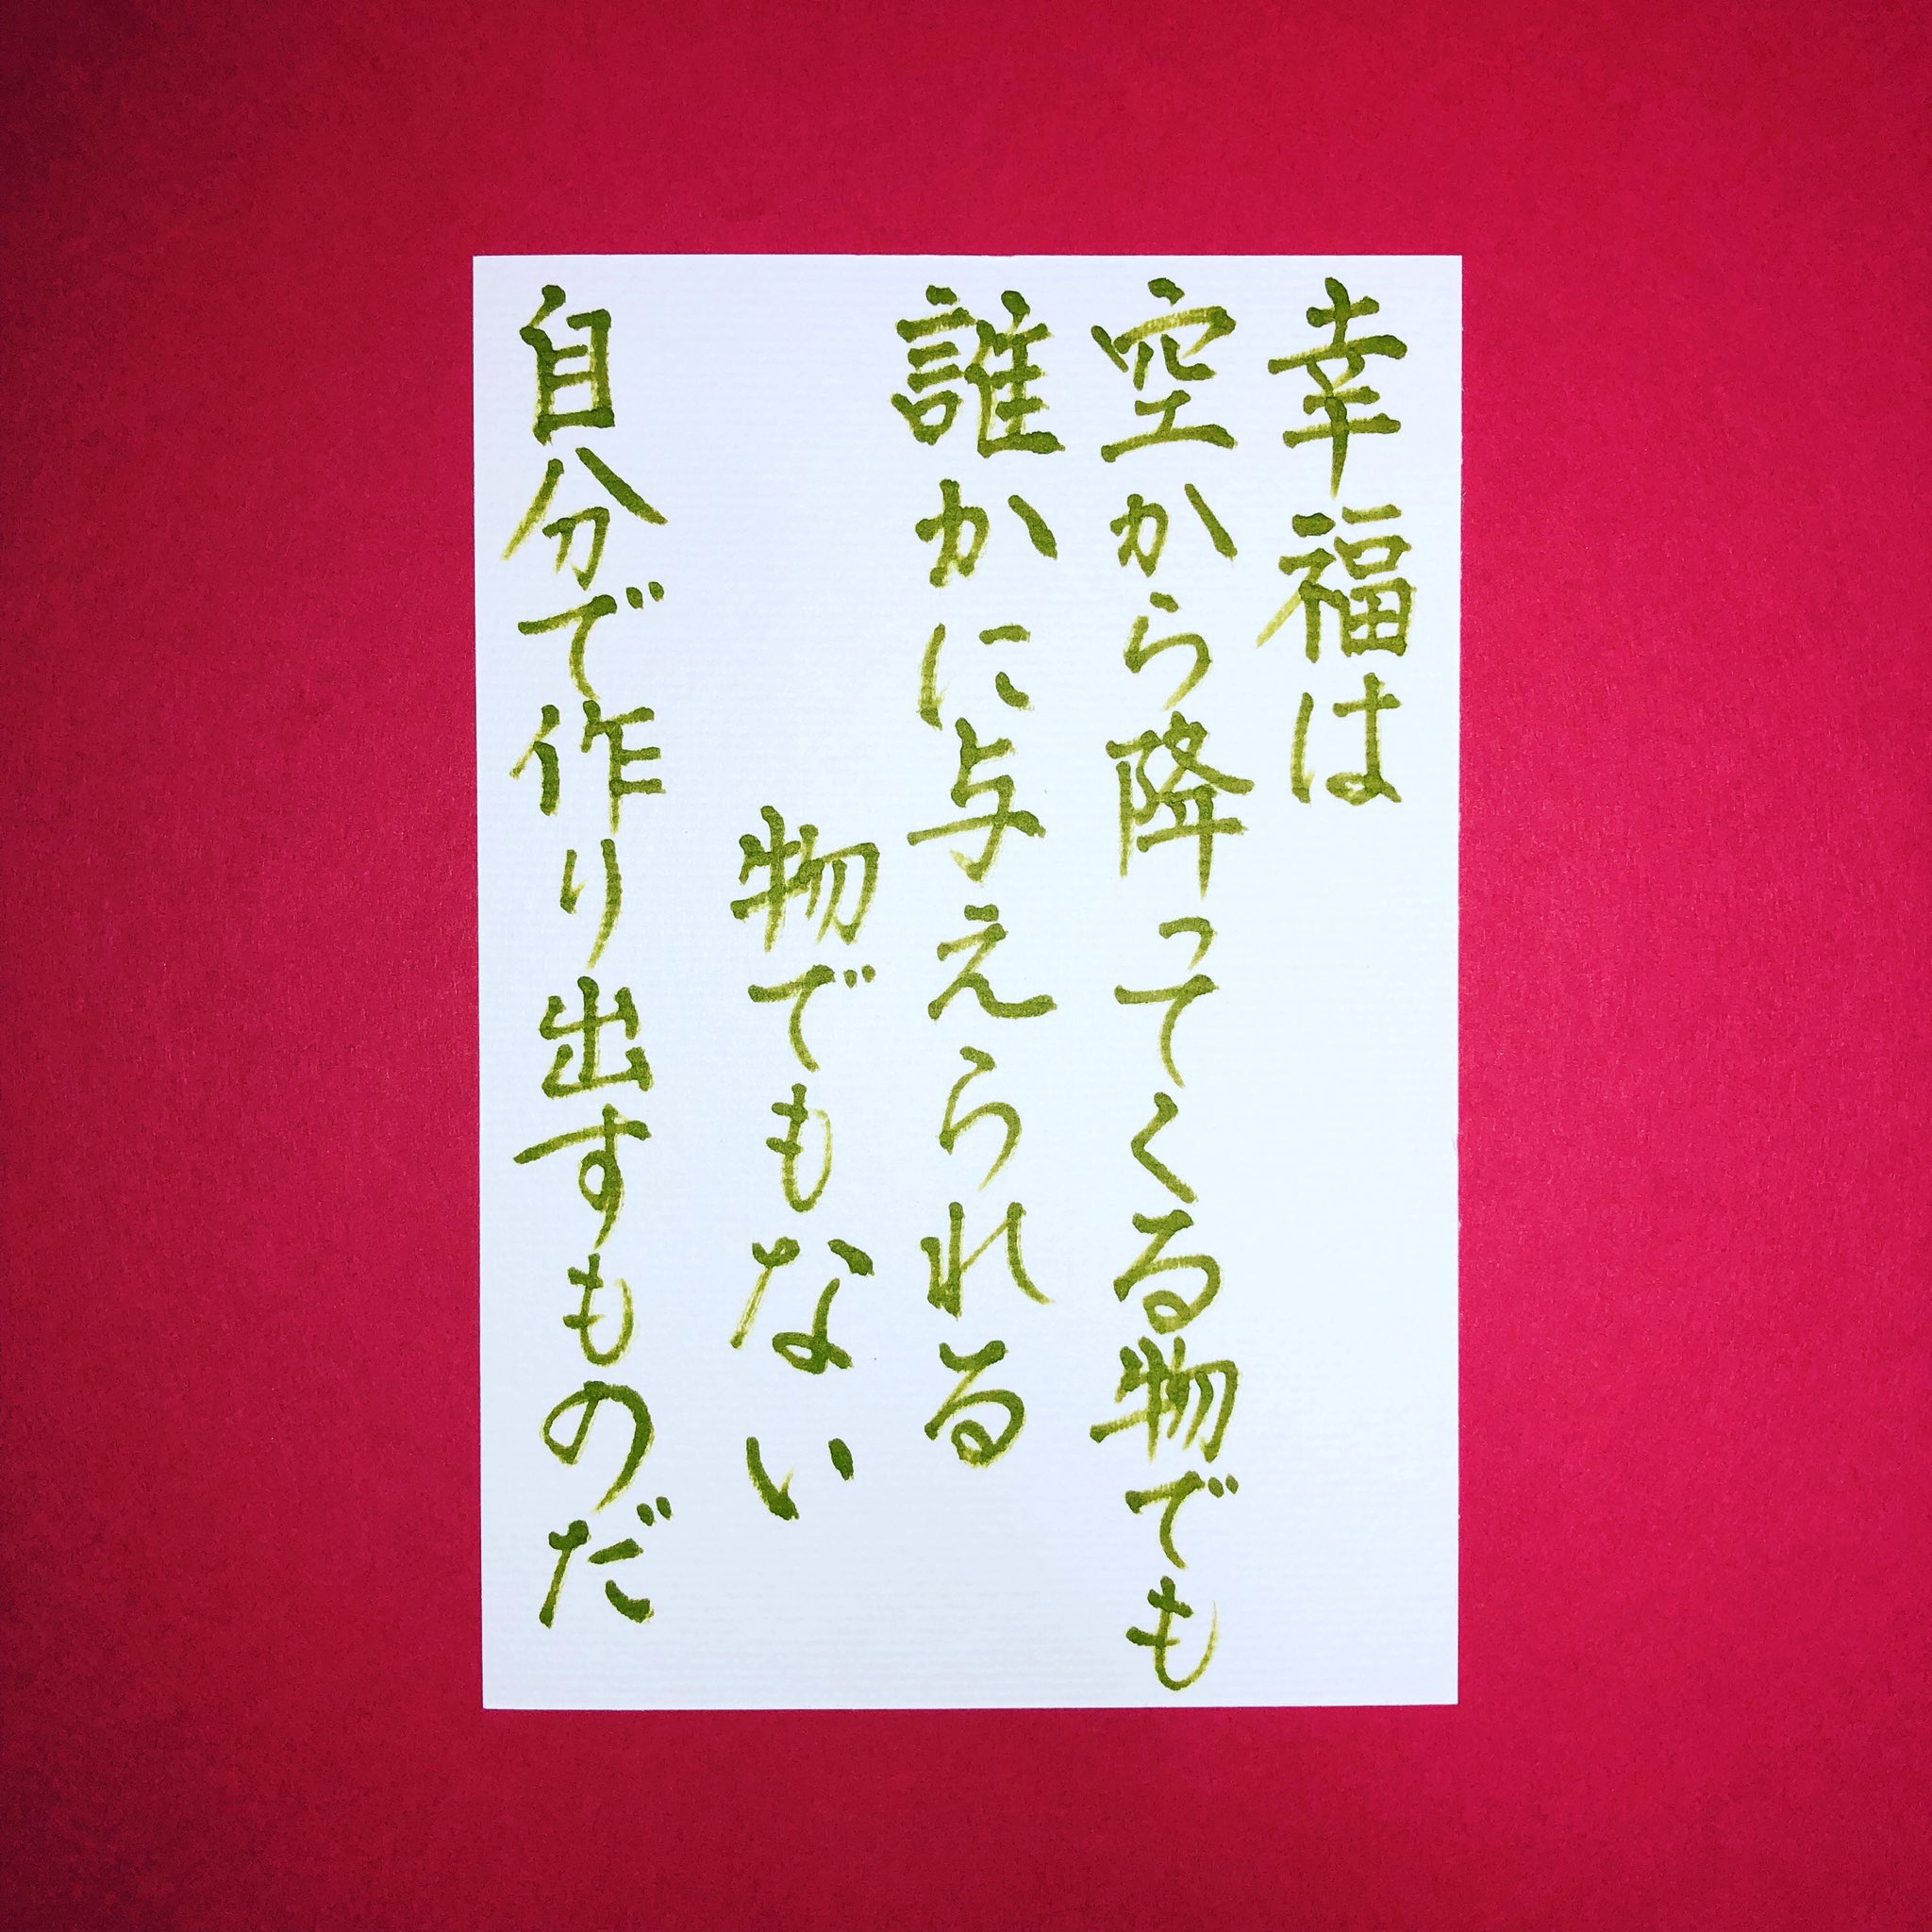 幸福は
空から降ってくる物でも
誰かに与えられる
物でもない
自分で作り出すものだ